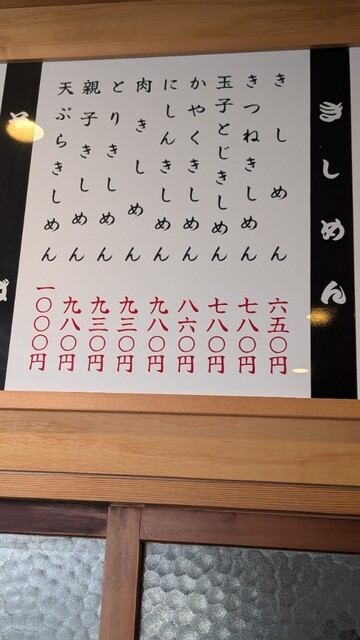 きしめん
きしめん 六五〇円
きつねきしめん 七八〇円
玉子とじきしめん 七八〇円
かやくきしめん 八六〇円
にしんきしめん 九八〇円
肉きしめん 九三〇円
とりきしめん 九三〇円
親子きしめん 九八〇円
天ぷらきしめん 一〇〇〇円